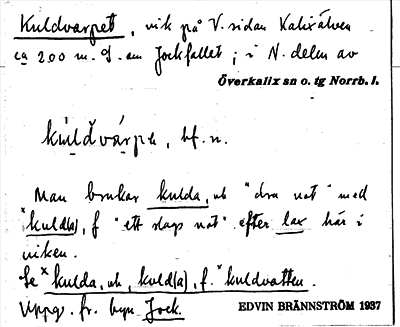 Kuldvarpet, vik på V. sidan Kalixälven
ca 200 m. S. om Jockfallet; i N. delen av
Överkalix sn o. tg Norrb. l.
kuldvarpe, bf. n.
Man brukar kulda, vb "dra not" med
*kuld(a), f "ett slags not" efter lax här i
viken.
Se *kulda, vb, kuld(a), f. *kuldvatten.
Uppg. fr. byn Jock.
EDVIN BRÄNNSTRÖM 1937